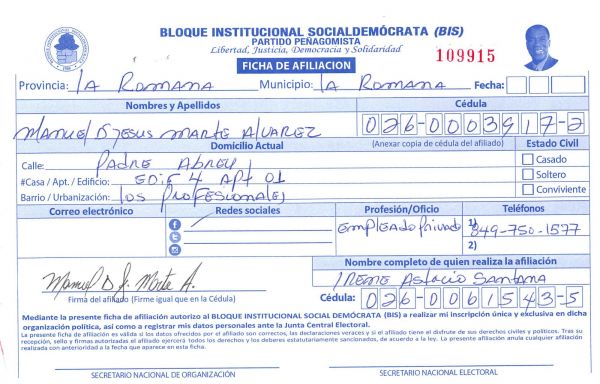 BLOQUE INSTITUCIONAL SOCIALDEMÓCRATA (BIS)
PARTIDO PEÑAGOMISTA
Libertad, Justicia, Democracia y Solidaridad
109915
FICHA DE AFILIACION
Provincia: LA ROMANA Municipio: LA ROMANA Fecha:
Nombres y Apellidos
Cédula
MANUEL D JESUS MARTE ALVAREZ
026-0003917-2
Domicilio Actual
(Anexar copia de cédula del afiliado)
Estado Civil
Calle: PADRE ABREU
Casado
#Casa / Apt. / Edificio: EDIF 4 APT 01
Soltero
Barrio / Urbanización: LOS PROFESIONALES
Conviviente
Correo electrónico
Redes sociales
Profesión/Oficio
Teléfonos
EMPLEADO Privado
1) 849-750-1577
2)
Nombre completo de quien realiza la afiliación
Manuel D J. Marte A.
IRENE Astacio Santana
Firma del afiliado (Firme igual que en la Cédula)
Cédula: 026-0061543-5
Mediante la presente ficha de afiliación autorizo al BLOQUE INSTITUCIONAL SOCIAL DEMÓCRATA (BIS) a realizar mi inscripción única y exclusiva en dicha
organización política, así como a registrar mis datos personales ante la Junta Central Electoral.
La presente ficha de afiliación es válida si los datos ofrecidos por el afiliado son correctos, las declaraciones veraces y si el afiliado tiene el disfrute de sus derechos civiles y políticos. Tras su
recepción, sello y firmas autorizadas el afiliado ejercerá todos los derechos y los deberes estatutariamente sancionados, de acuerdo a la ley. La presente afiliación anula cualquier afiliación
realizada con anterioridad a la fecha que aparece en esta ficha.
SECRETARIO NACIONAL DE ORGANIZACIÓN
SECRETARIO NACIONAL ELECTORAL